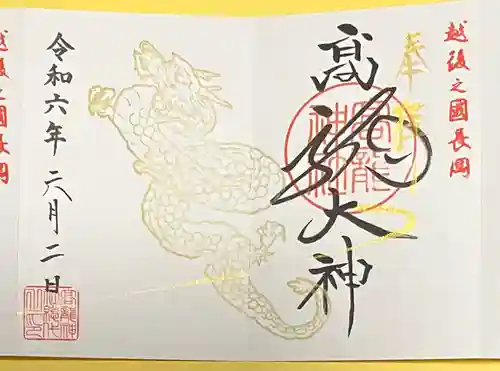 越後之國長岡
奉拝
高龍大神
高龍神社
令和六年六月二日
越後之國長岡